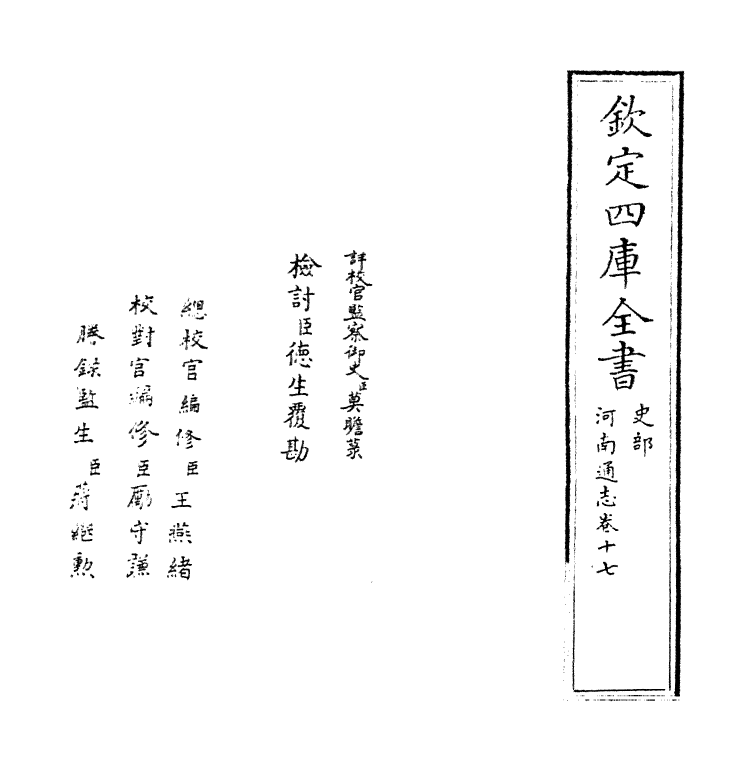 欽定四庫全書
史部
河南通志卷十七
詳校官監察御史臣莫瞻菉
檢討臣德生覆勘
總校官編修臣王燕緒
校對官編修臣厲守謙
謄錄監生臣蔣繼勲